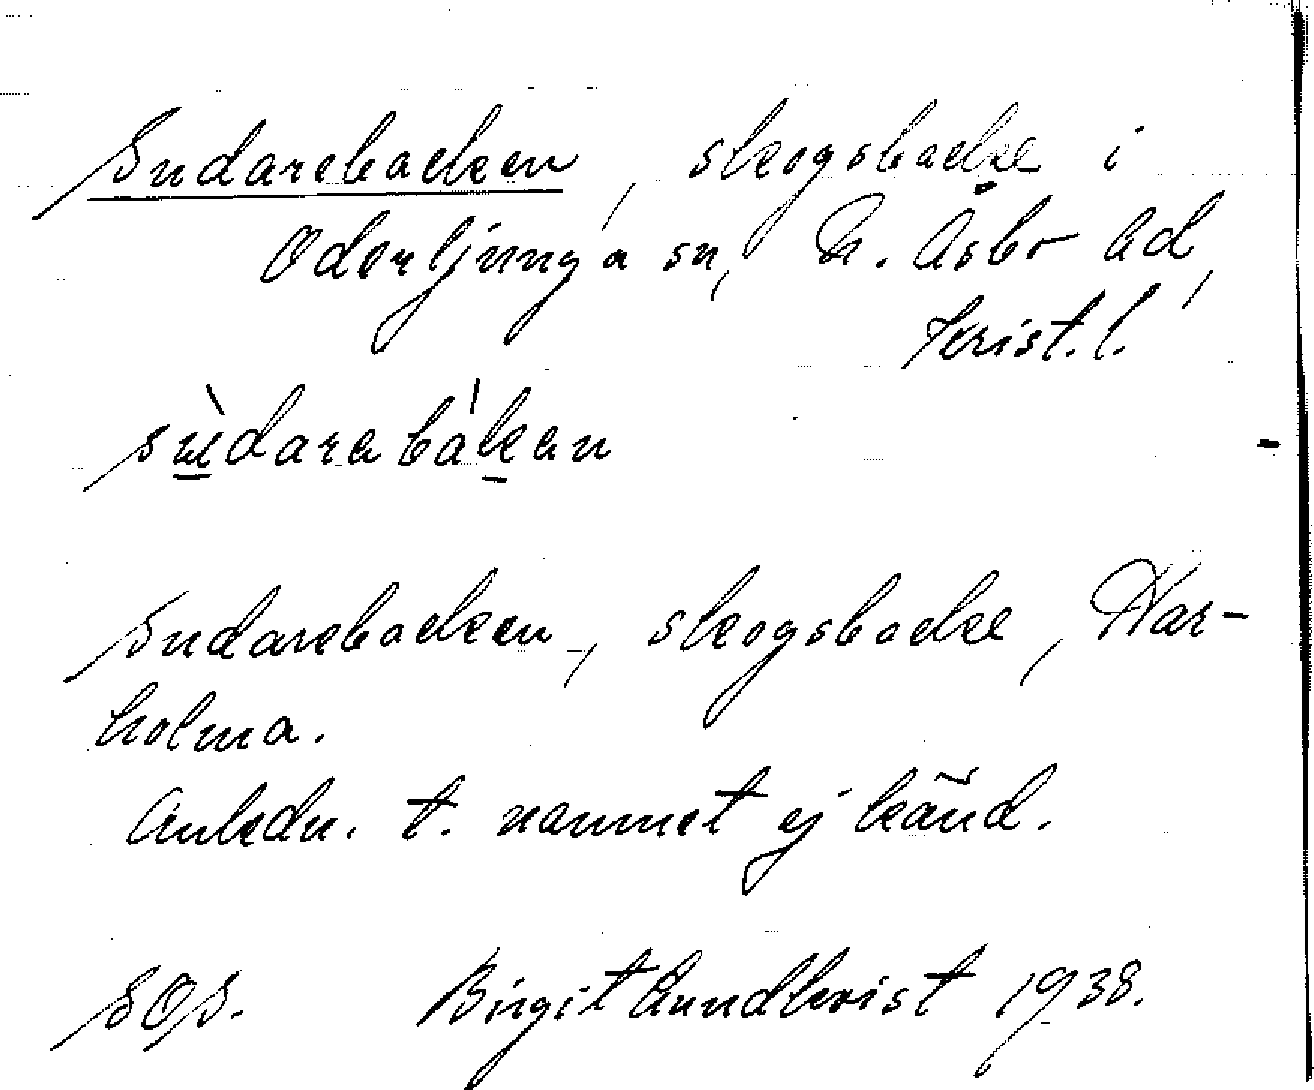 Sudarebacken, skogsbacke i
Oderljunga sn, N. Åsbo hd,
Krist. l.
sùdarebákan
Sudarebacken, skogsbacke, Har-
holma.
Anledn. t. namnet ej känd.
SOS. Birgit Lundkvist 1938.